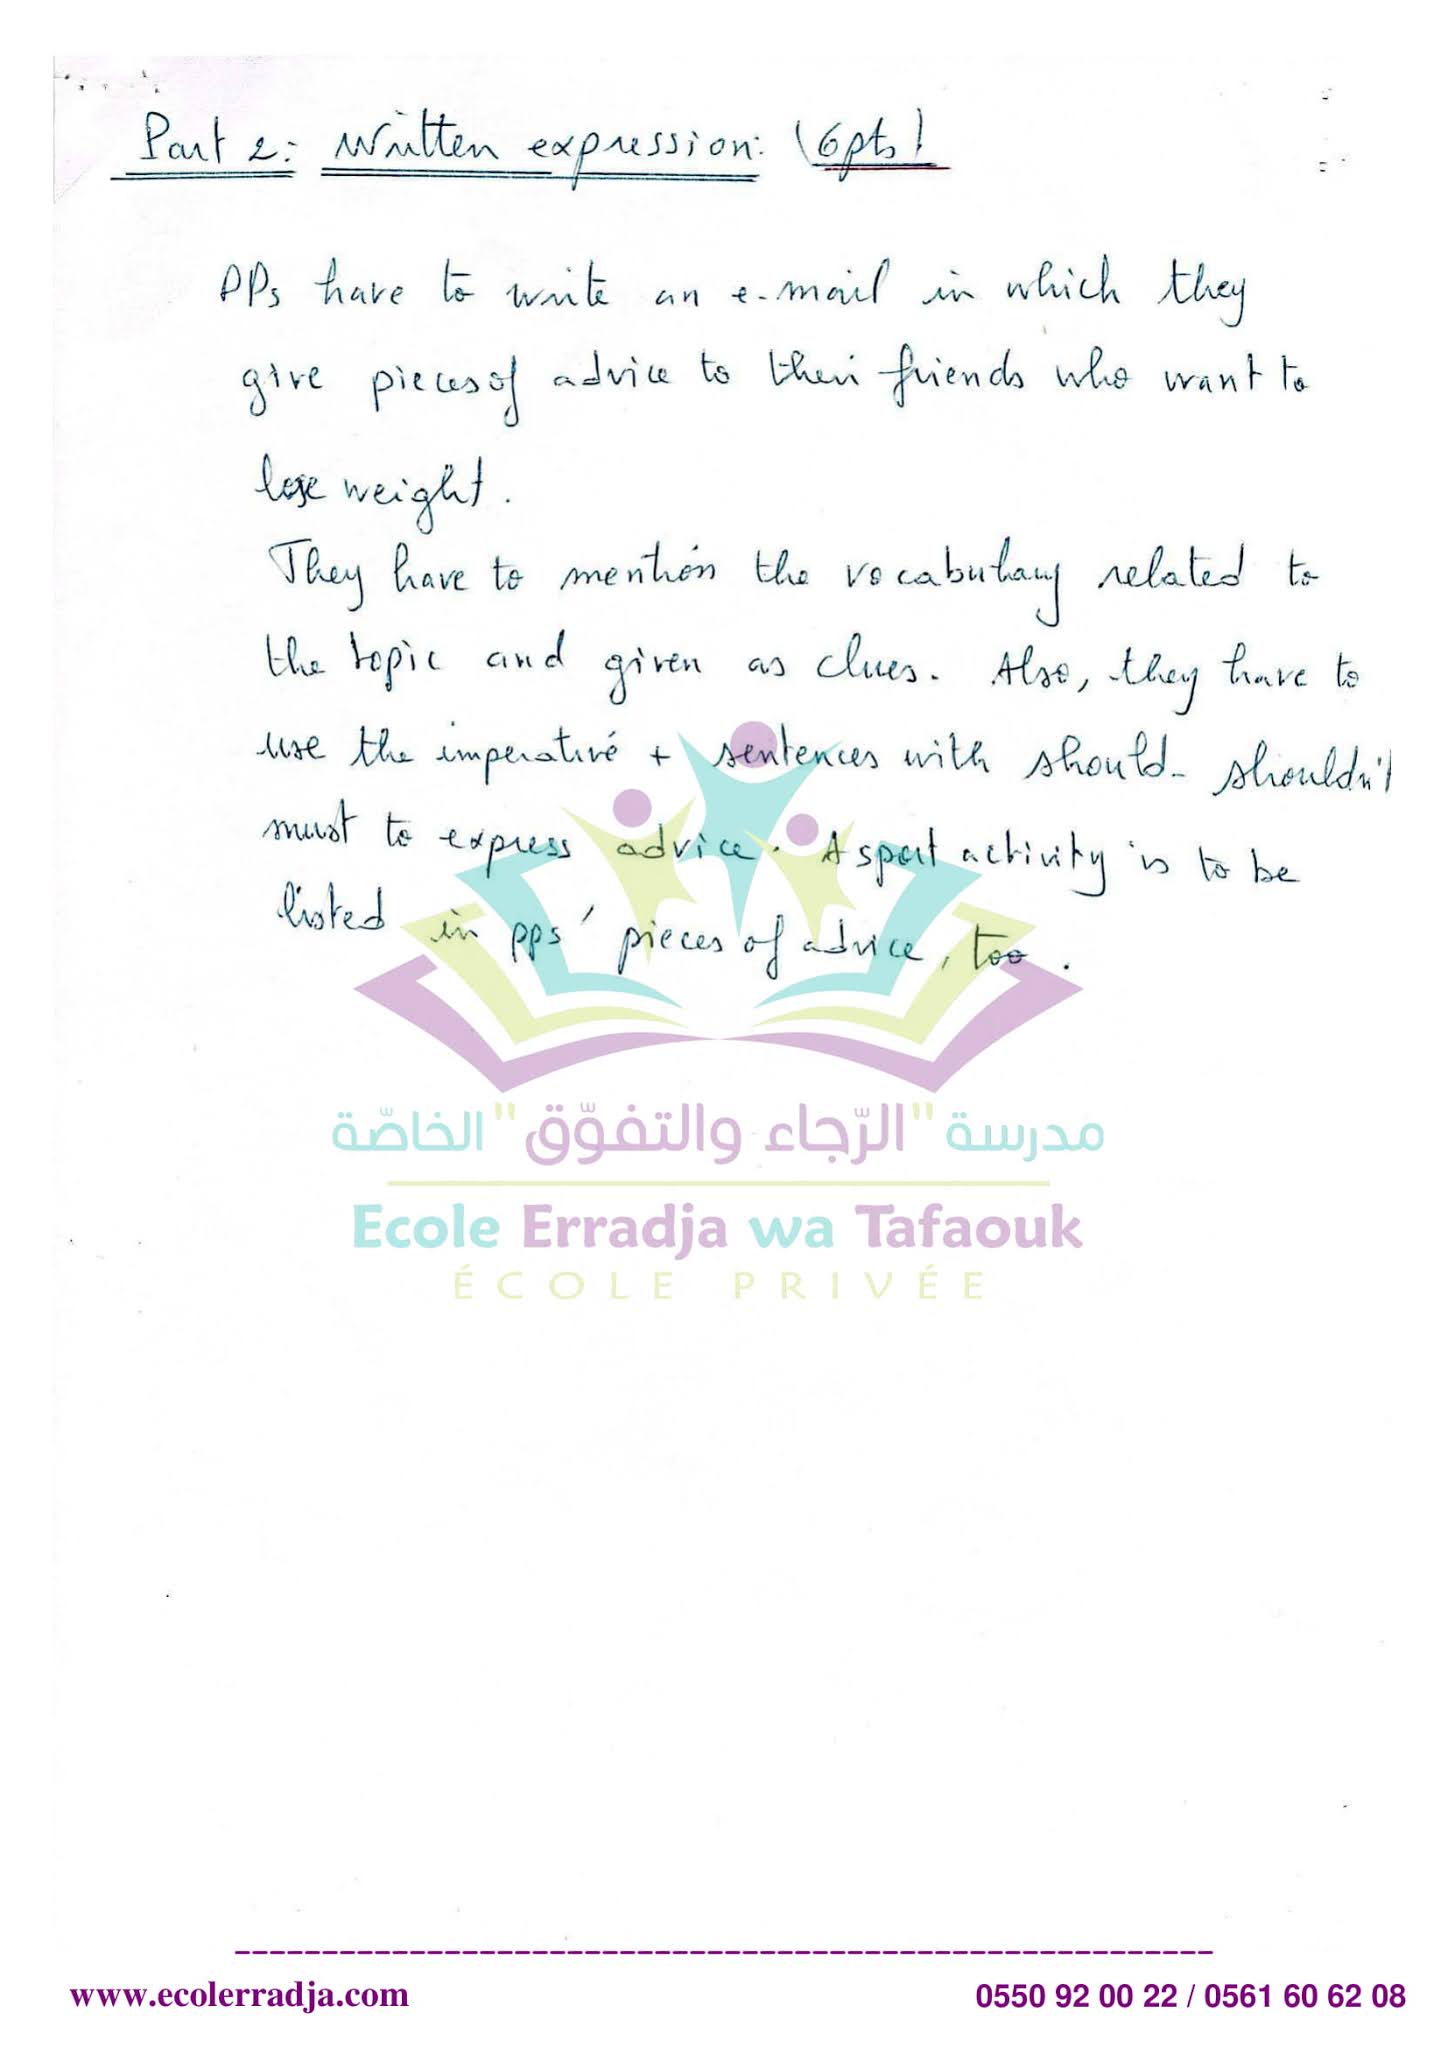 Part 2: Written expression: (6pts)
PPs have to write an e-mail in which they
give pieces of advice to their friends who want to
lose weight.
They have to mention the vocabulary related to
the topic and given as clues. Also, they have to
use the imperative + sentences with should - shouldn't
must to express advice. A sport activity is to be
listed in pps' pieces of advice, too.
مدرسة "الرّجاء والتفوّق" الخاصّة
Ecole Erradja wa Tafaouk
ÉCOLE PRIVÉE
www.ecolerradja.com
0550 92 00 22 / 0561 60 62 08